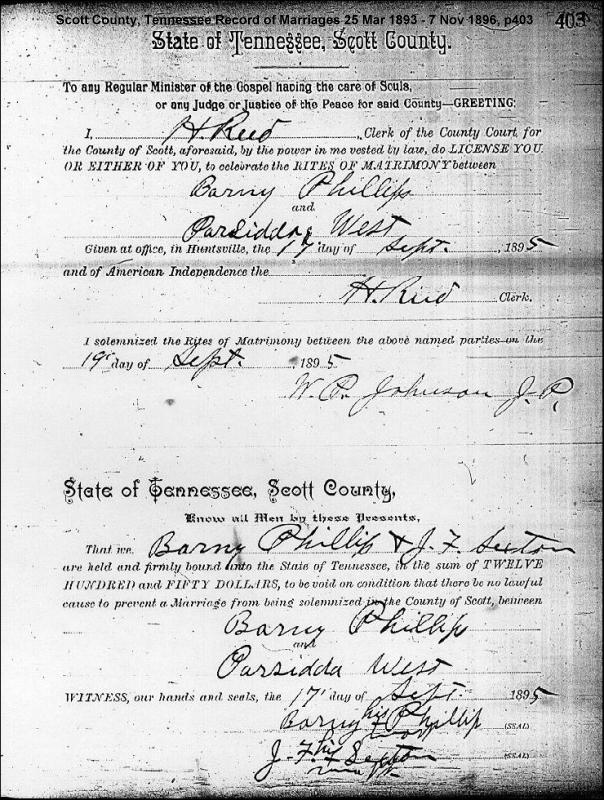 Scott County, Tennessee Record of Marriages 25 Mar 1893 - 7 Nov 1896, p403
403
State of Tennessee, Scott County.
To any Regular Minister of the Gospel having the care of Souls,
or any Judge or Justice of the Peace for said County—GREETING:
I, H. Reid, Clerk of the County Court, for
the County of Scott, aforesaid, by the power in me vested by law, do LICENSE YOU
OR EITHER OF YOU, to celebrate the RITES OF MATRIMONY between
Barny Phillips
and
Parsidda West
Given at office, in Huntsville, the 17 day of Sept. , 1895
and of American Independence the
H. Reid Clerk.
I solemnized the Rites of Matrimony between the above named parties on the
19 day of Sept. , 1895
W. P. Johnson J. P.
State of Tennessee, Scott County,
Know all Men by these Presents,
That we, Barny Phillip & J. F. Sexton
are held and firmly bound unto the State of Tennessee, in the sum of TWELVE
HUNDRED and FIFTY DOLLARS, to be void on condition that there be no lawful
cause to prevent a Marriage from being solemnized in the County of Scott, between
Barny Phillip
and
Parsidda West
WITNESS, our hands and seals, the 17 day of Sept 1895
Barny his Phillip (SEAL)
mark
J. F. his Sexton (SEAL)
mark